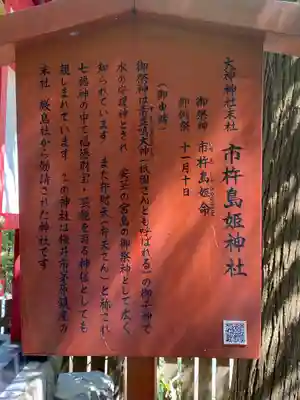 大神神社末社
市杵島姫神社
御祭神 市杵島姫命
御例祭 十一月十日
(御由緒)
御祭神は素盞嗚大神(祇園さんとも呼ばれる)の御子神で
水の守護神とされ 安芸の宮島の御祭神として広く
知られています また弁財天(弁天さん)と称され
七福神の中で福徳財宝・芸能を司る神様としても
親しまれています この神社は桜井市茅原鎮座の
末社 厳島社から勧請された神社です